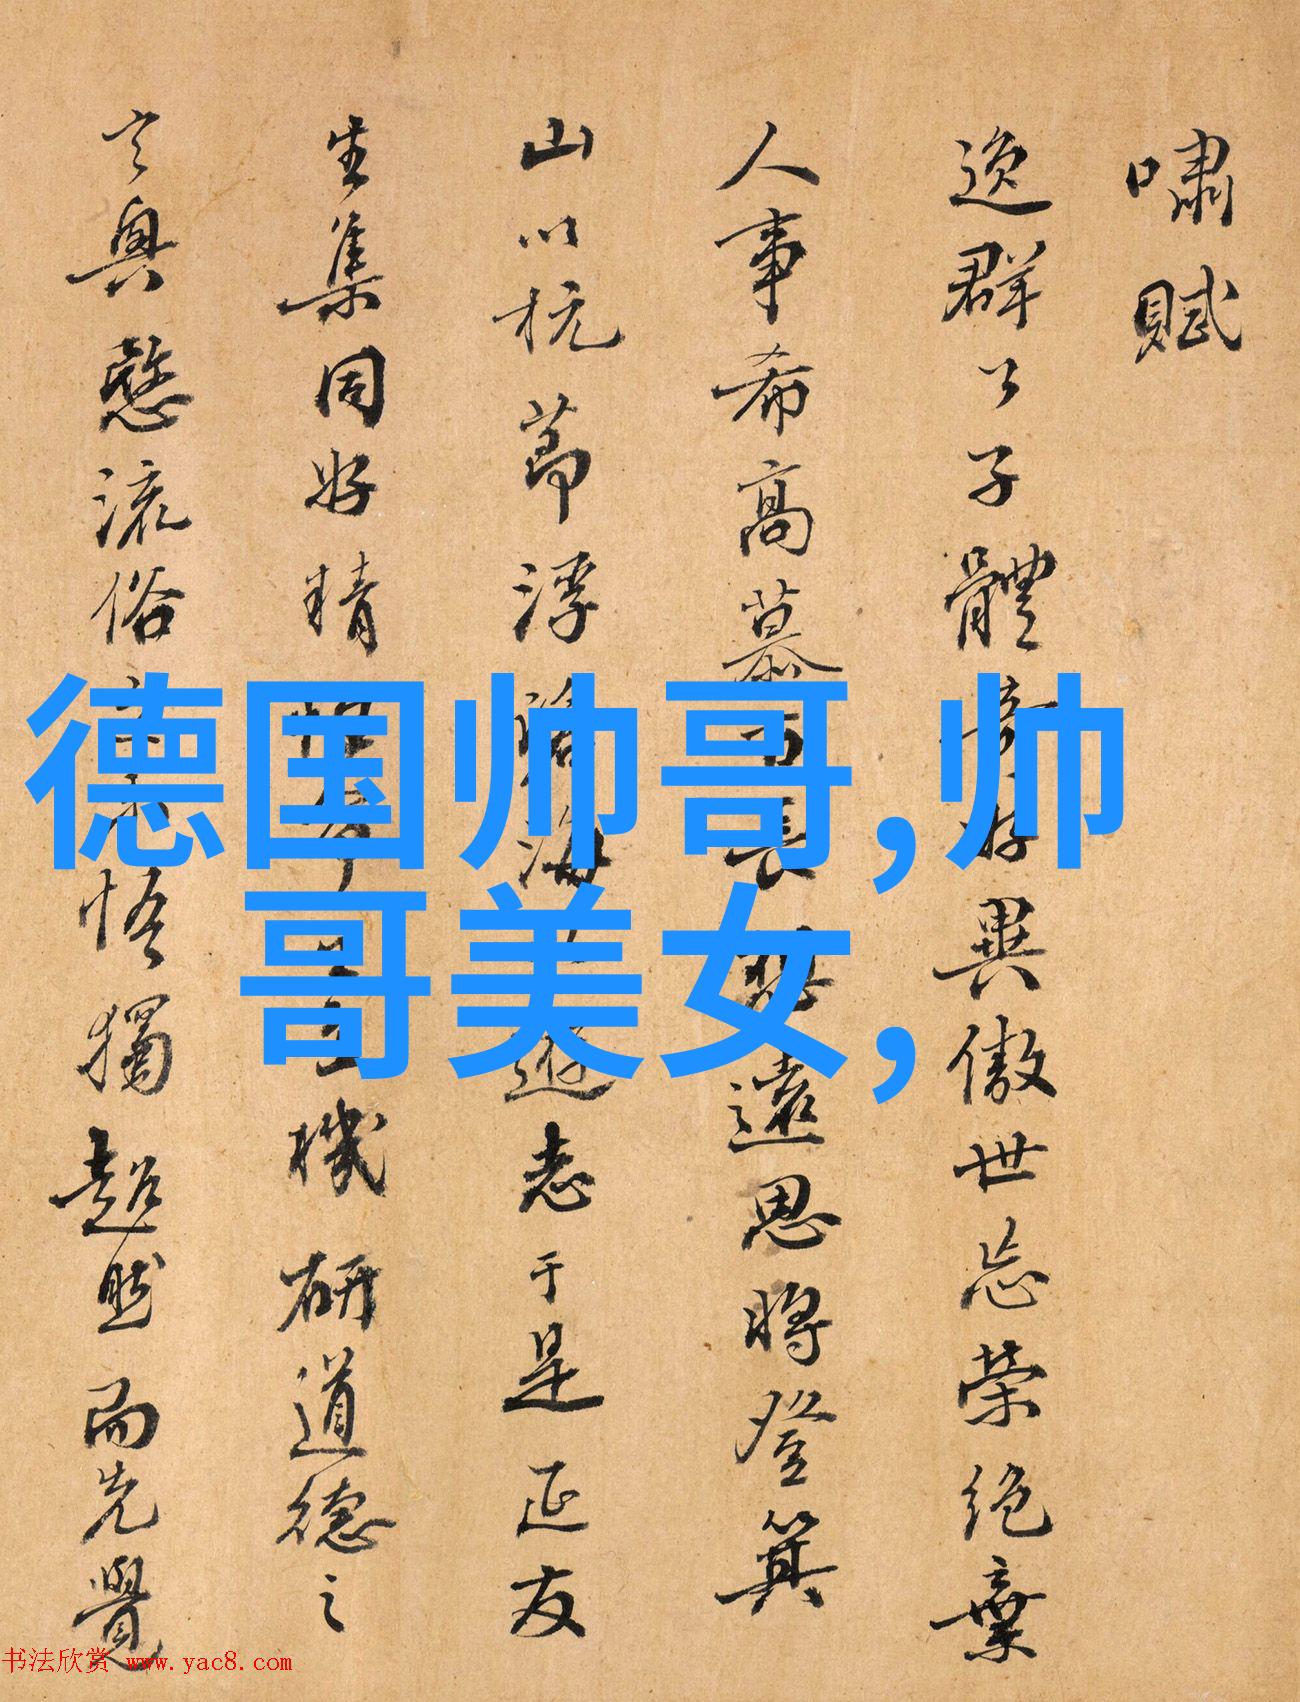 嘯賦
逸群公子體好異傲世忘榮絕棄
人事希高慕長遠思將登箕
山以抗節浮海遊志于是延友
生集同好精機研道德之
玄奧愍流俗悟獨超然而先覺
德国帅哥,帅
哥美女,
书法欣赏 www.yac8.com